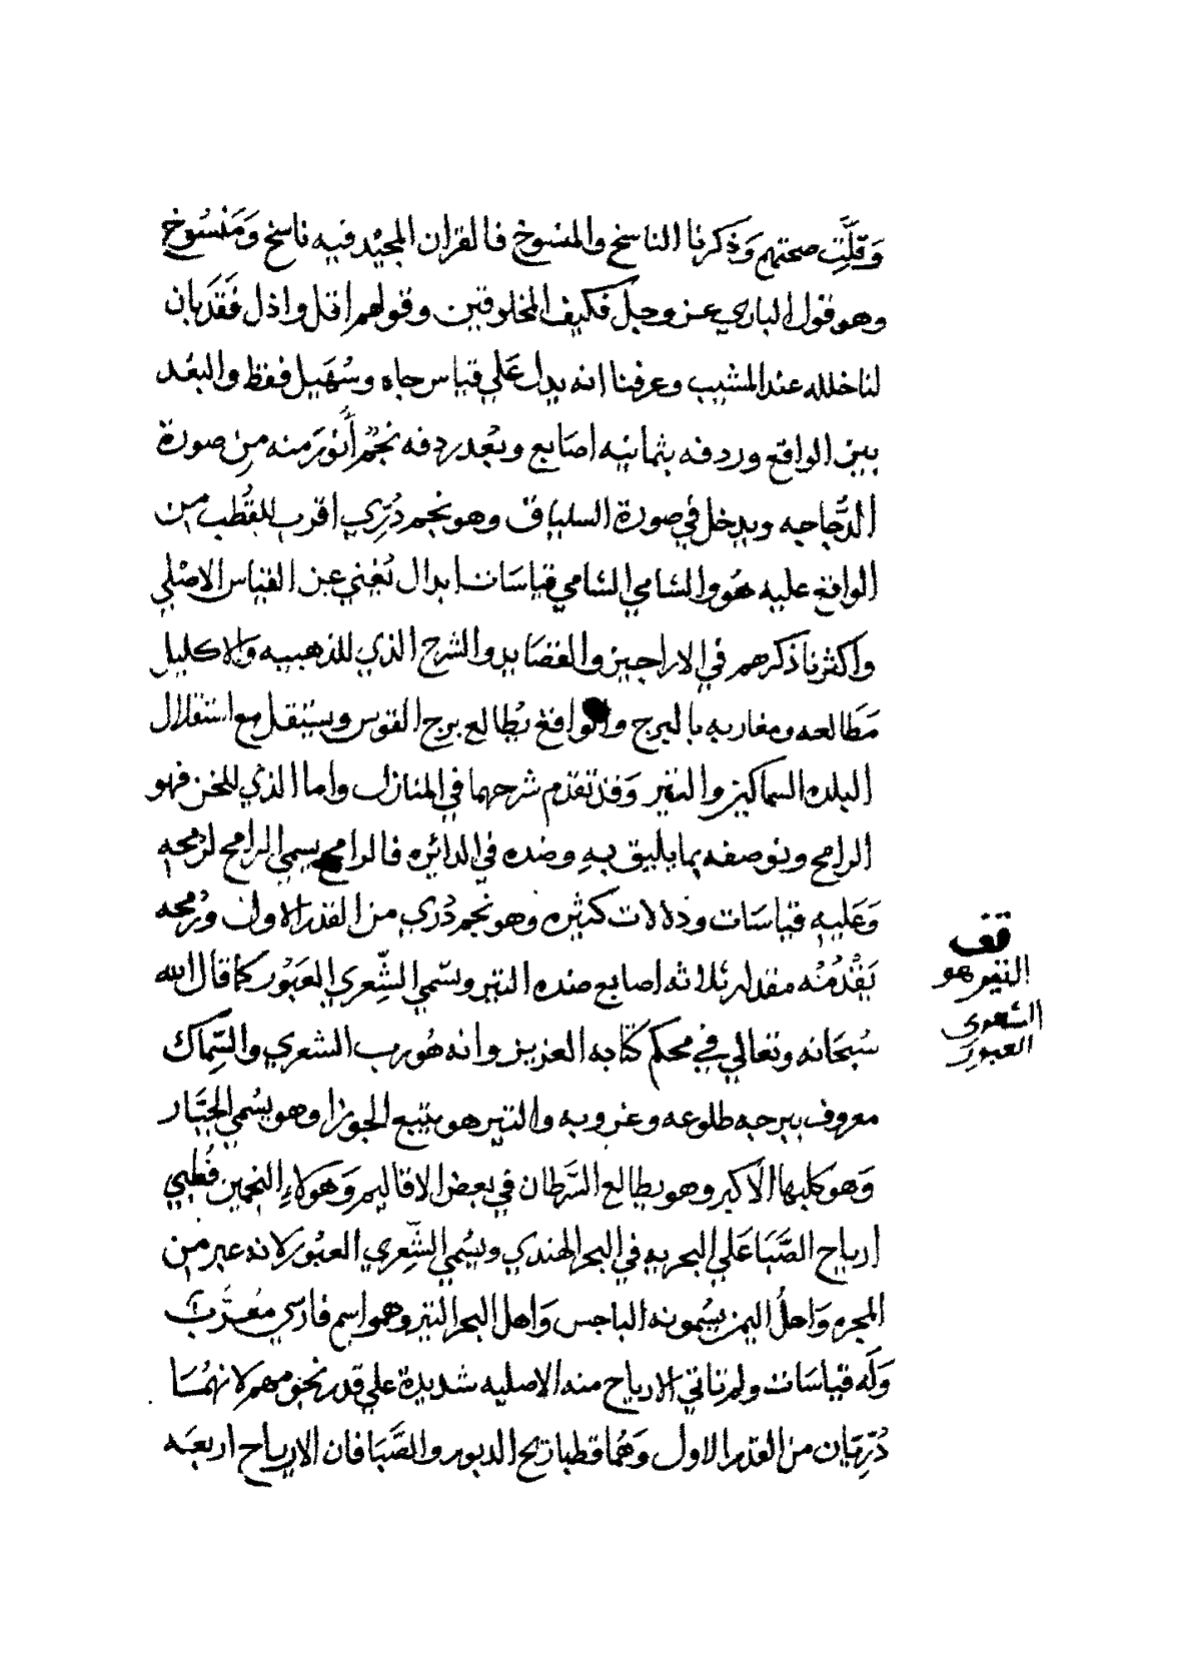 وَقلَّتِ صحتهم وَذكرنا الناسخ والمنسوخ فالقران المجيْد فيه ناسخ وَمَنْسُوخ
وهو قول الباري عز وجل فكيف المخلوقين وقولهم اقل واذل فقَد بان
لنا خلله عند المشيب وعرفنا انه يدل عَلي قياس جاه وسُهَيل فقط والبعْد
بين الواقع وردفه بثمانيه اصَابع وبعْد ردفه نجمٌ أنْوَر منه مِن صورة
الدَّجاجه ويدخل في صورة السلياق وهو نجم دُرِّي اقرب للقُطب من
الواقع عليه هُو والشامي الشامي قياسَات ابدال تُغني عن القياس الاصْلي
واكثرنا ذكرهم في الاراجيز والقصَايد والشرح الذي للذهبيه والاكليل
مَطالعه ومغاربه بالبرج والواقع يُطالع برج القوس ويستقل مع استقلال
البلده السماكين والتير وَقد تقدم شرحهما في المنازل واما الذي للخن فهو
الرامح ونوصفه بما يليق بهِ وضده في الدائره فالرامح يسمي الرامح لرمحهِ
وَعَليهِ قياسَات ودلالات كثيره وهو نجم دُري من القدر الاول ورُمحه
يَقْدُمُنْه مقدار ثلاثه اصابع ضده التير ويسمّي الشِّعري العَبُور كما قال الله
سُبحَانه وتعالي في محكم كتابه العزيز وانه هُو رب الشعري والسِّماك
معروف ببرجه طلوعه وغروبه والتير هو يتبع الجوزا وهو يسُمي الجبَّار
وَهو كلبها الاكبر وهو يطالع السَّرطان في بعض الاقاليم وَهولاءِ النجمين قُطبي
ارياح الصَّبَا عَلي البحريه في البحر الهندي ويسُمي الشِّعري العبُور لانه عبر من
المجره وَاهلُ اليمن يسُمونه الباجس وَاهل البحر التير وهو اسم فارسي مُعرَّب
وَلَه قياسَات ولم تاتي الارياح منه الاصليه شديدة علي قدر نحو مهم لانهمُا
دُرِّيَان من القدر الاول وَهُما قطبا ريح الدبور والصَّبَا فان الارياح اربعَه
قف
التير هو
الشعري
العبور